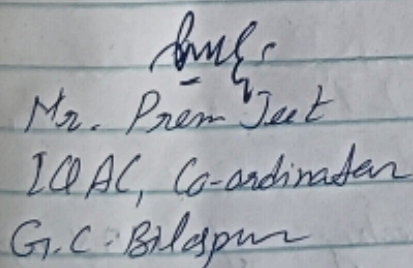 Mr. Prem Jeet
IQAC, Co-ordinator
G.C. Bilaspur